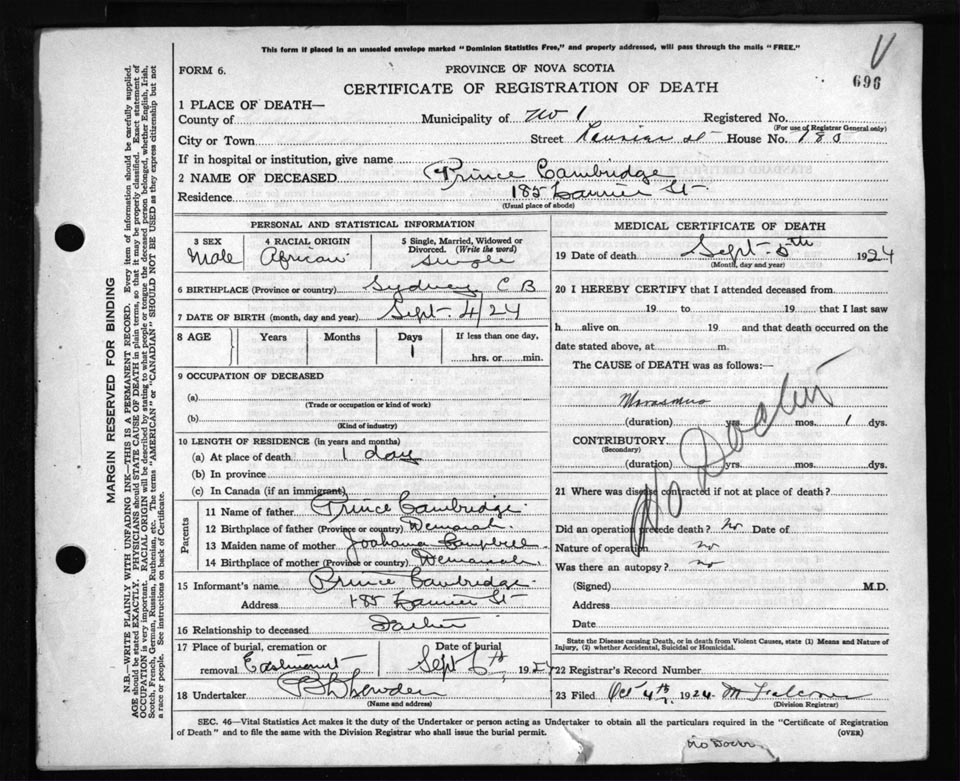 This form if placed in an unsealed envelope marked "Dominion Statistics Free," and properly addressed, will pass through the mails "FREE."
V
696
FORM 6.
PROVINCE OF NOVA SCOTIA
CERTIFICATE OF REGISTRATION OF DEATH
1 PLACE OF DEATH—
County of Municipality of No 1 Registered No.
(For use of Registrar General only)
City or Town Street St House No. 185
If in hospital or institution, give name
2 NAME OF DECEASED Prince Cambridge
Residence 185 St
(Usual place of abode)
MARGIN RESERVED FOR BINDING
N.B.—WRITE PLAINLY WITH UNFADING INK—THIS IS A PERMANENT RECORD. Every item of information should be carefully supplied.
AGE should be stated EXACTLY. PHYSICIANS should STATE CAUSE OF DEATH in plain terms, so that it may be properly classified. Exact statement of
OCCUPATION is very important. RACIAL ORIGIN will be described by stating to what people or tongue the deceased person belonged, whether English, Irish,
Scotch, French, German, Russian, Ruthenian, etc. The terms "AMERICAN" or "CANADIAN" SHOULD NOT BE USED as they express citizenship but not
a race or people. See instructions on back of Certificate.
PERSONAL AND STATISTICAL INFORMATION
3 SEX
Male
4 RACIAL ORIGIN
African
5 Single, Married, Widowed or
Divorced. (Write the word)
Single
6 BIRTHPLACE (Province or country) Sydney C B
7 DATE OF BIRTH (month, day and year) Sept 4/24
8 AGE Years Months Days If less than one day,
1 hrs. or min.
9 OCCUPATION OF DECEASED
(a)
(Trade or occupation or kind of work)
(b)
(Kind of industry)
10 LENGTH OF RESIDENCE (in years and months)
(a) At place of death 1 day
(b) In province
(c) In Canada (if an immigrant)
Parents
11 Name of father Prince Cambridge
12 Birthplace of father (Province or country)
13 Maiden name of mother Campbell
14 Birthplace of mother (Province or country)
15 Informant's name Prince Cambridge
Address 185 St
16 Relationship to deceased Father
17 Place of burial, cremation or Date of burial
removal Eastmount Sept 6th 1924
18 Undertaker
(Name and address)
MEDICAL CERTIFICATE OF DEATH
19 Date of death Sept 5th 1924
(Month, day and year)
20 I HEREBY CERTIFY that I attended deceased from
19 to 19 that I last saw
h alive on 19 and that death occurred on the
date stated above, at m.
The CAUSE of DEATH was as follows:—
Marasmus
(duration) yrs. mos. 1 dys.
CONTRIBUTORY
(Secondary)
(duration) yrs. mos. dys.
No Doctor
21 Where was disease contracted if not at place of death?
Did an operation precede death? No Date of
Nature of operation no
Was there an autopsy? no
(Signed) M.D.
Address
Date
State the Disease causing Death, or in death from Violent Causes, state (1) Means and Nature of
Injury, (2) whether Accidental, Suicidal or Homicidal.
22 Registrar's Record Number
23 Filed Oct 4th 1924
(Division Registrar)
SEC. 46—Vital Statistics Act makes it the duty of the Undertaker or person acting as Undertaker to obtain all the particulars required in the "Certificate of Registration
of Death" and to file the same with the Division Registrar who shall issue the burial permit.
(OVER)
no Doctor